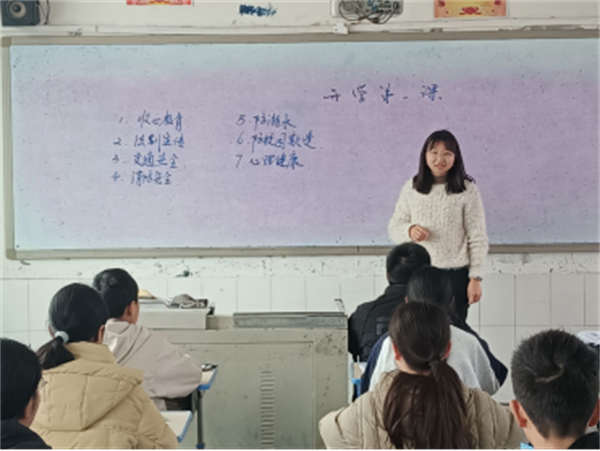 开学第一课
1. 收心教育
2. 法制宣传
3. 交通安全
4. 消防安全
5. 防溺水
6. 防校园欺凌
7. 心理健康